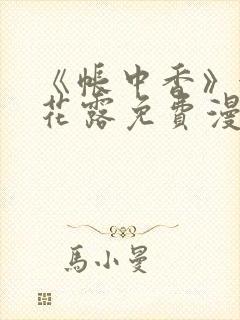 《帳中香》
花露免費漫
馬小曼